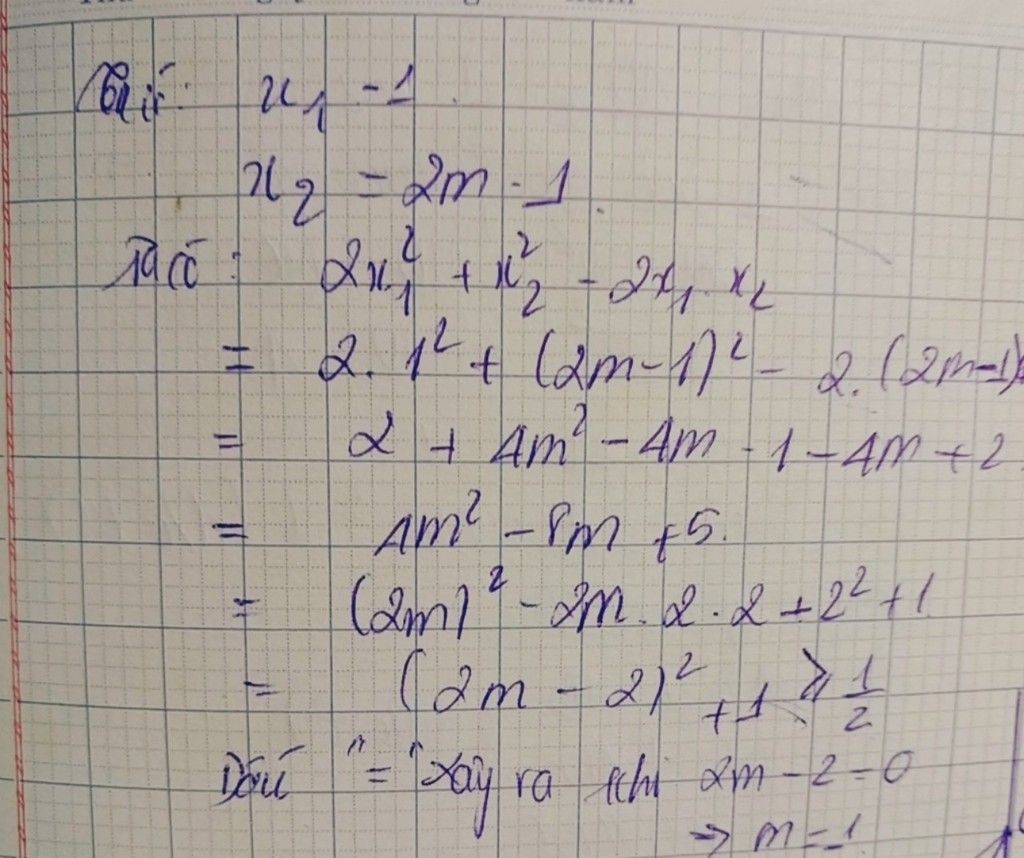 x₁ = 1
x₂ = 2m - 1.
Ta có: 2x₁² + x₂² - 2x₁.x₂
= 2.1² + (2m-1)² - 2.(2m-1)
= 2 + 4m² - 4m - 1 - 4m + 2
= 4m² - 8m + 5.
= (2m)² - 2m.2.2 + 2² + 1
= (2m - 2)² + 1 ≥ 1/2
Dấu "=" xảy ra khi 2m - 2 = 0
=> m = 1